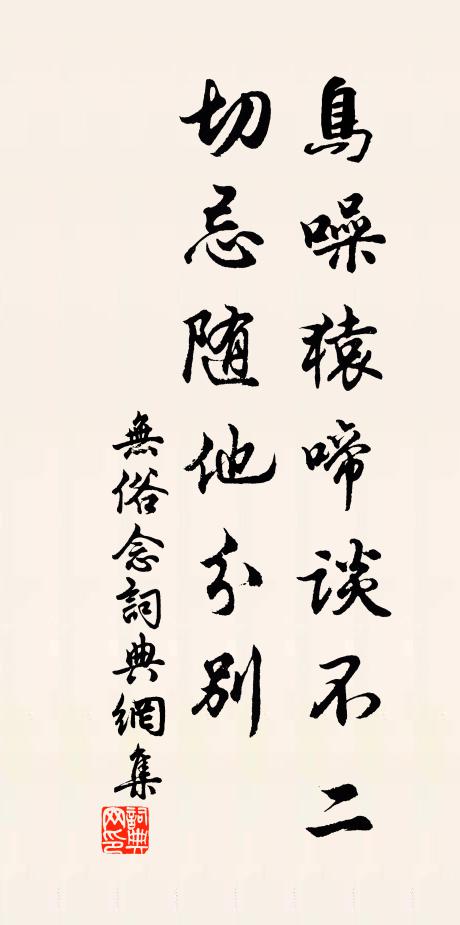 鳥噪猿啼談不二
切忌随他分別
無俗念詞典網集
詞典
网印